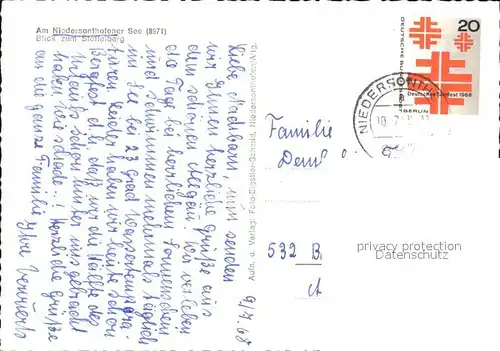 Am Niedersonthofener See (8971)
Blick zum Stoffelberg
9/7.68
Liebe Nachbarn, nun senden
wir Ihnen herzliche Grüße aus
dem schönen Allgäu! Wir verleben
die Tage bei herrlichem Sonnenschein
und schwimmen mehrmals täglich
im See bei 23 Grad Wassertempera-
turen. Leider haben wir heute schon
Bergfest d.h. daß wir die Hälfte des
Urlaubs schon hinter uns gebracht
haben, wie schade! Herzliche Grüße
an die ganze Familie Ihre
Aufn. u. Verlag: Foto-Eigstler-Schmid, Niedersonthofen/Allg.
DEUTSCHE BUNDESPOST
BERLIN
20
Deutsches Turnfest 1968
NIEDERSONTH
Familie
532 B
privacy protection
Datenschutz